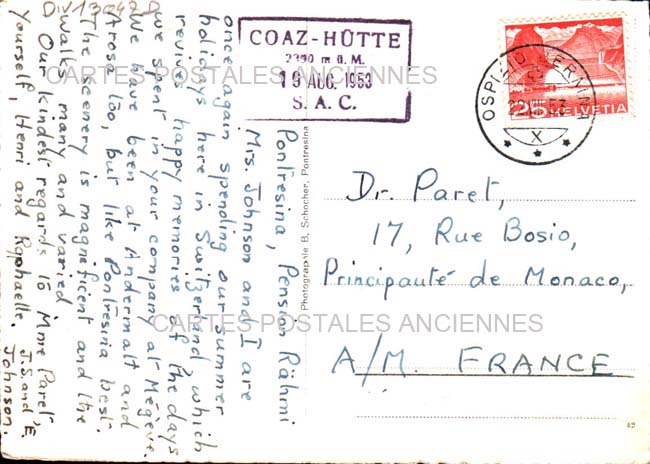 Div13042D
COAZ-HÜTTE
2390 m ü. M.
19 AUG. 1953
S. A. C.
HELVETIA
25
OSPIZIO BERNINA
X
Pontresina, Pension Rähmi
Mrs. Johnson and I are
once again spending our summer
holidays here in Switzerland which
revives happy memories of the days
we spent in your company at Megève.
We have been at Andermatt and
Arosa too, but like Pontresina best.
The scenery is magnificent and the
walks many and varied.
Our kindest regards to Mme Paret,
Yourself, Henri and Raphaelle.
J.S. and E.
Johnson.
Photographie B. Schocher, Pontresina
Dr. Paret,
17, Rue Bosio,
Principauté de Monaco,
A/M. FRANCE
CARTES POSTALES ANCIENNES
CARTES POSTALES ANCIENNES